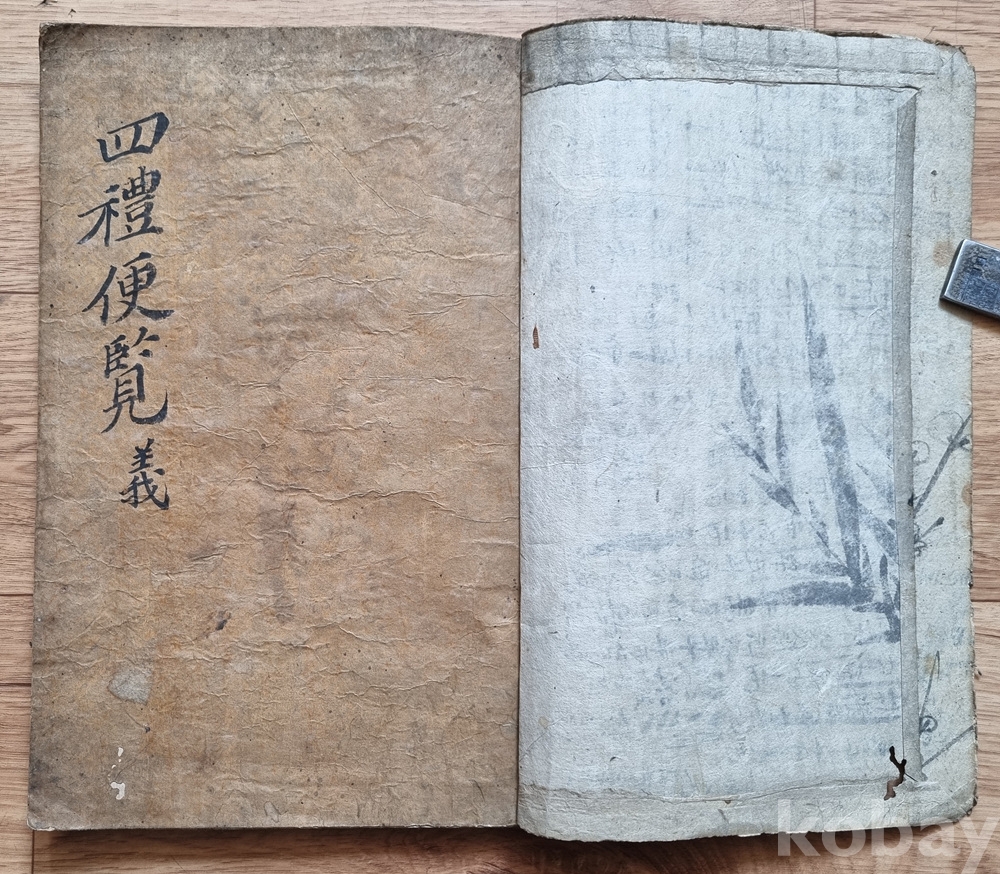 四禮便覽 義
kobay